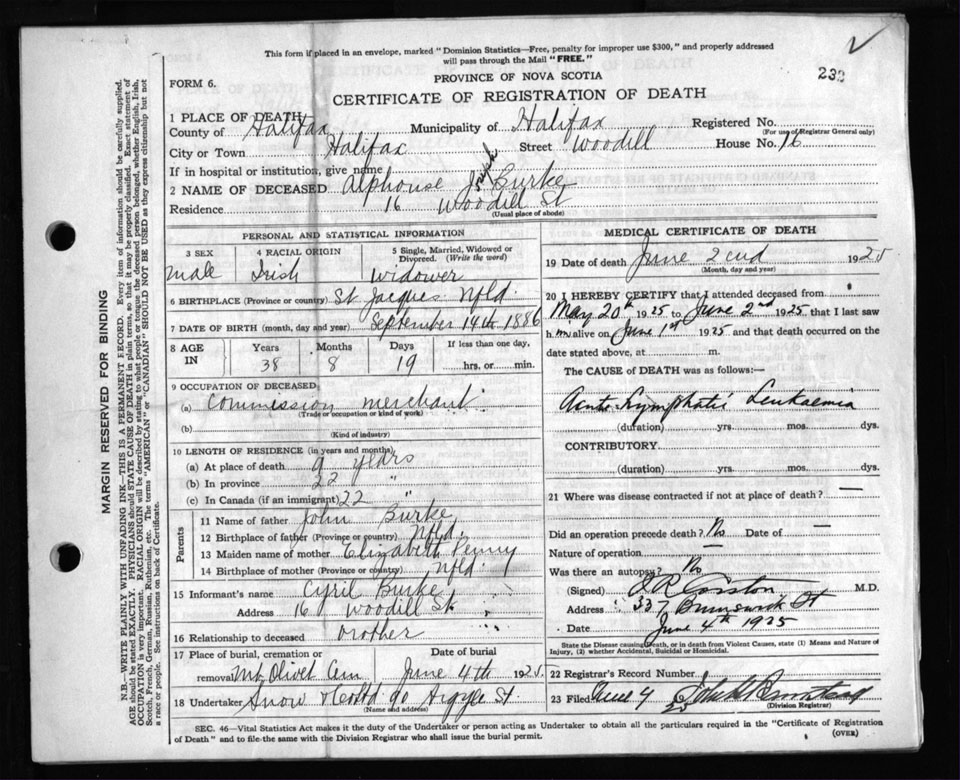 This form if placed in an envelope, marked "Dominion Statistics—Free, penalty for improper use $300," and properly addressed
will pass through the Mail "FREE."
PROVINCE OF NOVA SCOTIA
FORM 6.
CERTIFICATE OF REGISTRATION OF DEATH
1 PLACE OF DEATH
County of Halifax Municipality of Halifax Registered No.
(For use of Registrar General only)
City or Town Halifax Street Woodill House No. 16
If in hospital or institution, give name
2 NAME OF DECEASED Alphonse Burke
Residence 16 Woodill St
(Usual place of abode)
PERSONAL AND STATISTICAL INFORMATION
3 SEX 4 RACIAL ORIGIN 5 Single, Married, Widowed or Divorced. (Write the word)
male Irish Widower
6 BIRTHPLACE (Province or country) St Jacques Nfld.
7 DATE OF BIRTH (month, day and year) September 14th 1886
8 AGE IN Years Months Days If less than one day,
38 8 19 hrs. or min.
9 OCCUPATION OF DECEASED:
(a) Commission merchant
(Trade or occupation or kind of work)
(b)
(Kind of industry)
10 LENGTH OF RESIDENCE (in years and months)
(a) At place of death 9 years
(b) In province 22 "
(c) In Canada (if an immigrant) 22 "
Parents
11 Name of father John Burke
12 Birthplace of father (Province or country) Nfld.
13 Maiden name of mother Elizabeth Penny
14 Birthplace of mother (Province or country) Nfld.
15 Informant's name Cyril Burke
Address 16 Woodill St.
16 Relationship to deceased brother
17 Place of burial, cremation or removal Date of burial
Mt Olivet Cem. June 4th 1925.
18 Undertaker Snow & Co Ltd 90 Argyle St.
(Name and address)
MEDICAL CERTIFICATE OF DEATH
19 Date of death June 2nd 1925
(Month, day and year)
20 I HEREBY CERTIFY that I attended deceased from
May 20th 1925 to June 2nd 1925 that I last saw
him alive on June 1st 1925 and that death occurred on the
date stated above, at m.
The CAUSE of DEATH was as follows:—
Acute Lymphatic Leukaemia
(duration) yrs. mos. dys.
CONTRIBUTORY.
(duration) yrs. mos. dys.
21 Where was disease contracted if not at place of death? —
Did an operation precede death? No Date of —
Nature of operation —
Was there an autopsy? No
(Signed) M.D.
Address 337 Brunswick St
Date June 4th 1925
State the Disease causing Death, or in death from Violent Causes, state (1) Means and Nature of
Injury, (2) whether Accidental, Suicidal or Homicidal.
22 Registrar's Record Number
23 Filed June 4
(Division Registrar)
SEC. 46—Vital Statistics Act makes it the duty of the Undertaker or person acting as Undertaker to obtain all the particulars required in the "Certificate of Registration
of Death" and to file the same with the Division Registrar who shall issue the burial permit.
(OVER)
MARGIN RESERVED FOR BINDING
N.B.—WRITE PLAINLY WITH UNFADING INK—THIS IS A PERMANENT RECORD. Every item of information should be carefully supplied.
AGE should be stated EXACTLY. PHYSICIANS should STATE CAUSE OF DEATH in plain terms, so that it may be properly classified. Exact statement of
OCCUPATION is very important. RACIAL ORIGIN will be described by stating to what people or tongue the deceased person belonged, whether English, Irish,
Scotch, French, German, Russian, Ruthenian, etc. The terms "AMERICAN" or "CANADIAN" SHOULD NOT BE USED as they express citizenship but not
a race or people. See instructions on back of Certificate.